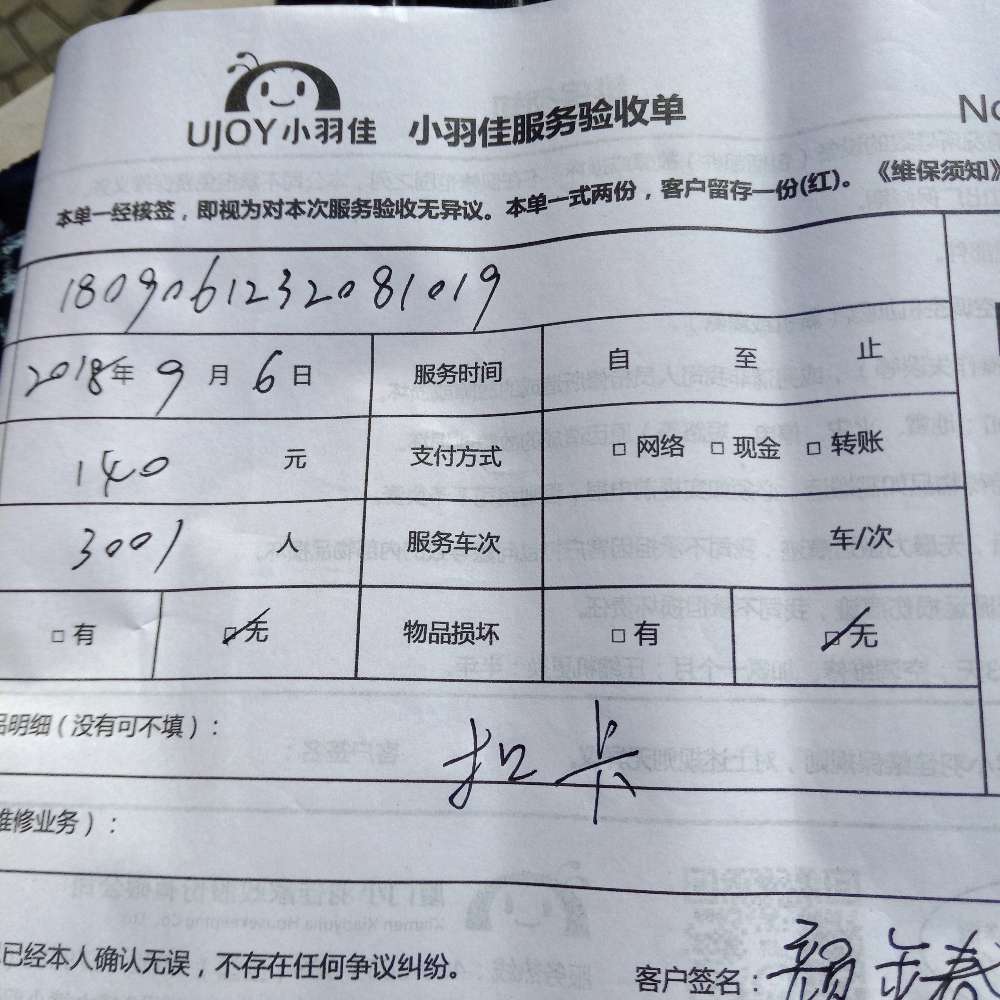 UJOY小羽佳 小羽佳服务验收单 No
本单一经核签，即视为对本次服务验收无异议。本单一式两份，客户留存一份(红)。《维保须知》
1809061232081019
2018年 9 月 6 日 服务时间 自 至 止
140 元 支付方式 □ 网络 □ 现金 □ 转账
3001 人 服务车次 车/次
□ 有 ☑ 无 物品损坏 □ 有 ☑ 无
品明细(没有可不填)： 扣卡
维修业务)：
已经本人确认无误，不存在任何争议纠纷。 客户签名：颜金春